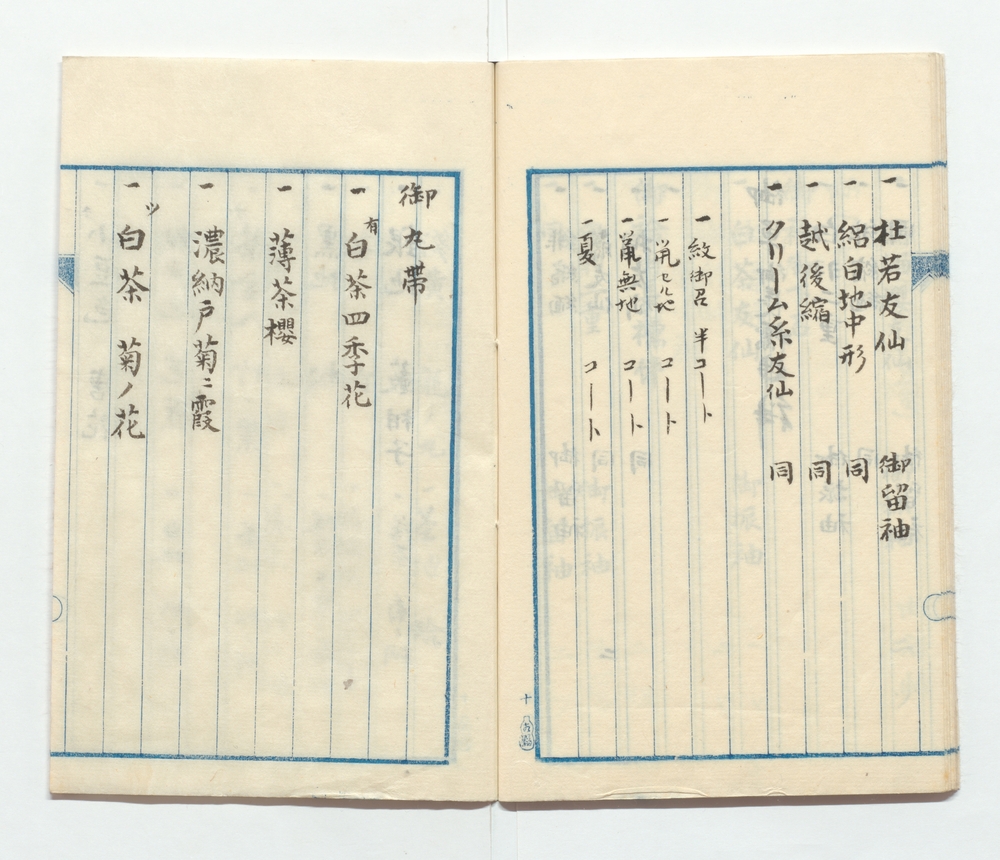 一 杜若友仙 御留袖
一 絽白地中形 同
一 越後縮 同
一 クリーム糸友仙 同
一 紋御召 半コート
一 鼠セル地 コート
一 鼠無地 コート
一 夏 コート
十
御丸帯
一 有 白茶四季花
一 薄茶櫻
一 濃納戸菊ニ霞
一 ツ 白茶 菊ノ花